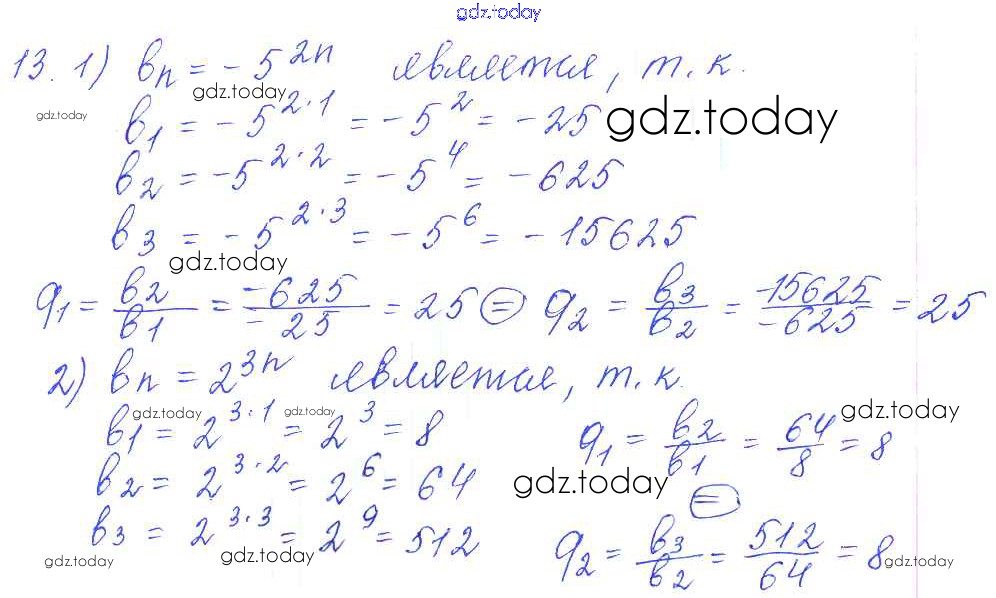 gdz.today
13. 1) bₙ = -5²ⁿ является, т.к.
gdz.today
gdz.today b₁ = -5^(2·1) = -5² = -25 gdz.today
b₂ = -5^(2·2) = -5⁴ = -625
b₃ = -5^(2·3) = -5⁶ = -15625
gdz.today
q₁ = b₂/b₁ = -625/-25 = 25 (=) q₂ = b₃/b₂ = -15625/-625 = 25
2) bₙ = 2³ⁿ является, т.к.
gdz.today gdz.today gdz.today
b₁ = 2^(3·1) = 2³ = 8 q₁ = b₂/b₁ = 64/8 = 8
b₂ = 2^(3·2) = 2⁶ = 64 gdz.today (=)
b₃ = 2^(3·3) = 2⁹ = 512 q₂ = b₃/b₂ = 512/64 = 8
gdz.today gdz.today gdz.today